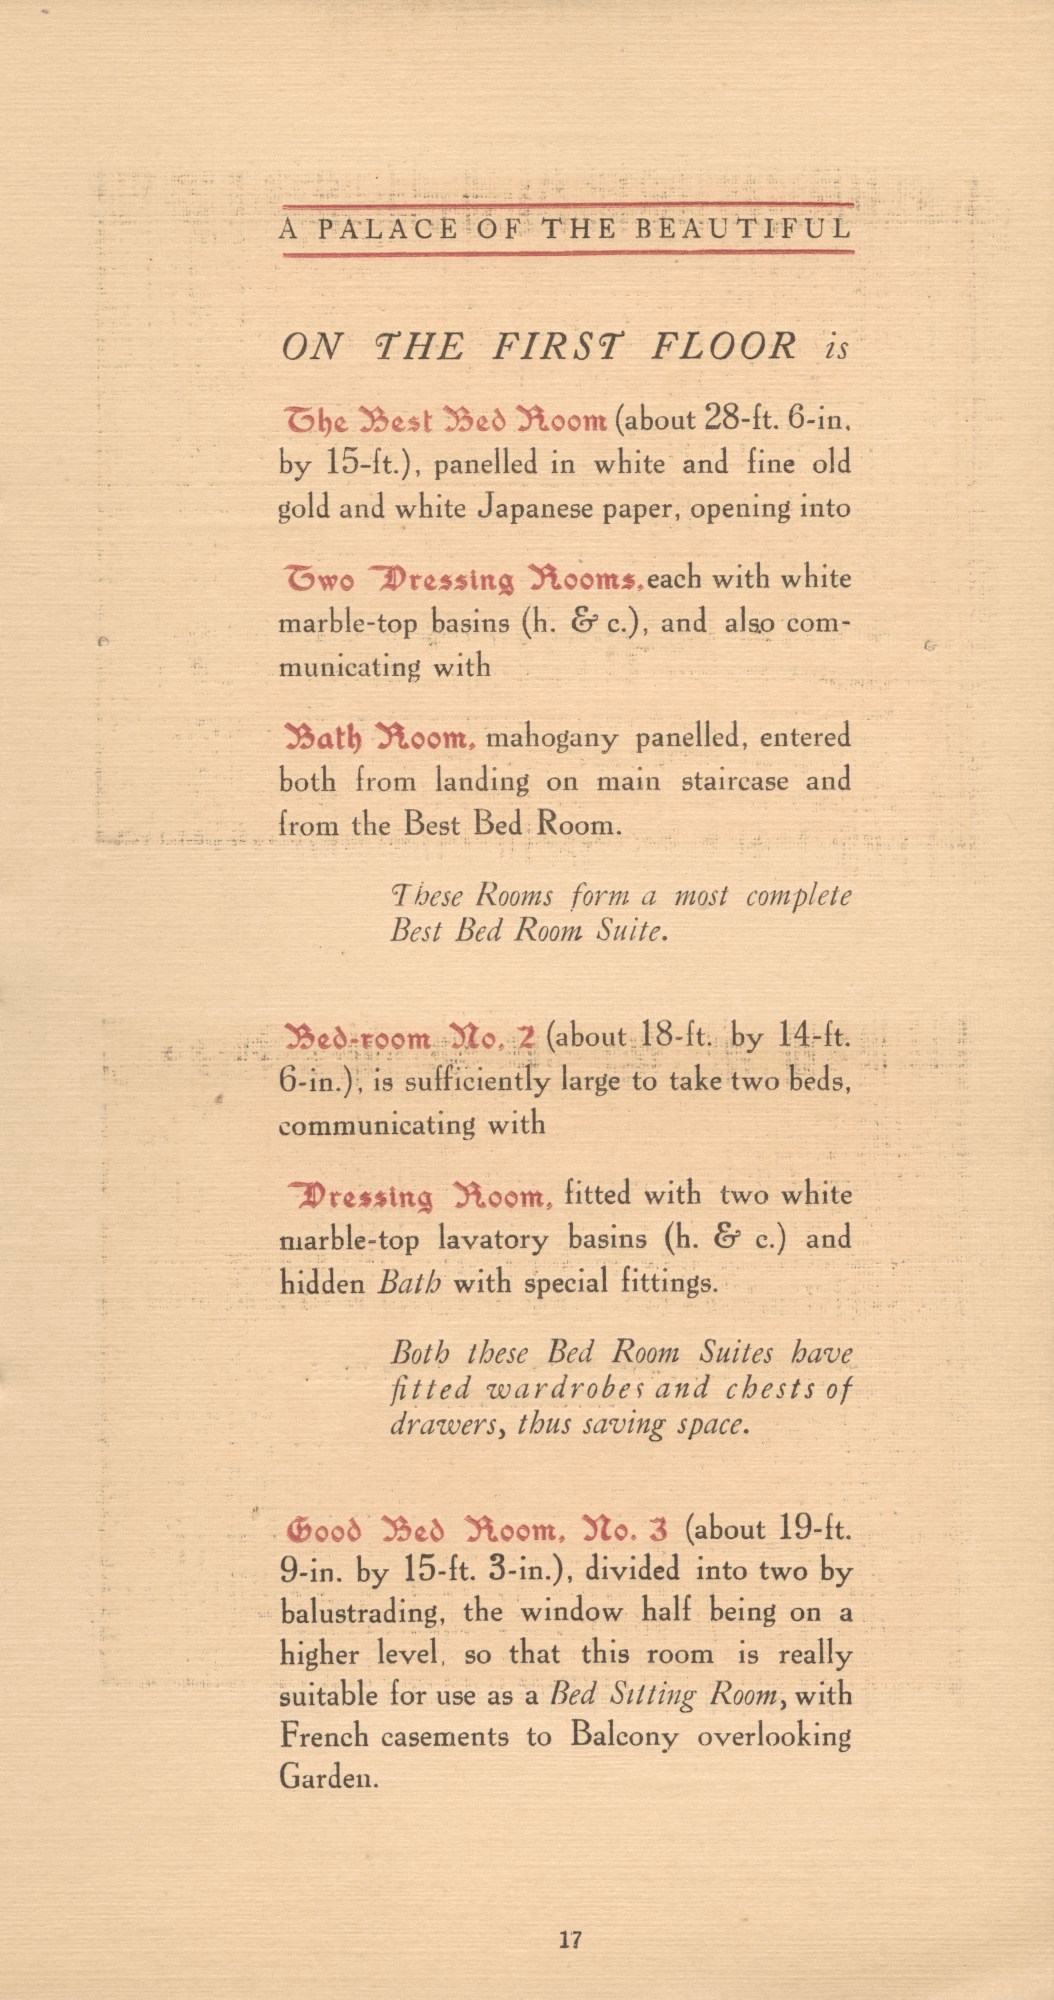 A PALACE OF THE BEAUTIFUL
ON THE FIRST FLOOR is
The Best Bed Room (about 28-ft. 6-in.
by 15-ft.), panelled in white and fine old
gold and white Japanese paper, opening into
Two Dressing Rooms, each with white
marble-top basins (h. & c.), and also com-
municating with
Bath Room, mahogany panelled, entered
both from landing on main staircase and
from the Best Bed Room.
These Rooms form a most complete
Best Bed Room Suite.
Bed-room No. 2 (about 18-ft. by 14-ft.
6-in.), is sufficiently large to take two beds,
communicating with
Dressing Room, fitted with two white
marble-top lavatory basins (h. & c.) and
hidden Bath with special fittings.
Both these Bed Room Suites have
fitted wardrobes and chests of
drawers, thus saving space.
Good Bed Room, No. 3 (about 19-ft.
9-in. by 15-ft. 3-in.), divided into two by
balustrading, the window half being on a
higher level, so that this room is really
suitable for use as a Bed Sitting Room, with
French casements to Balcony overlooking
Garden.
17